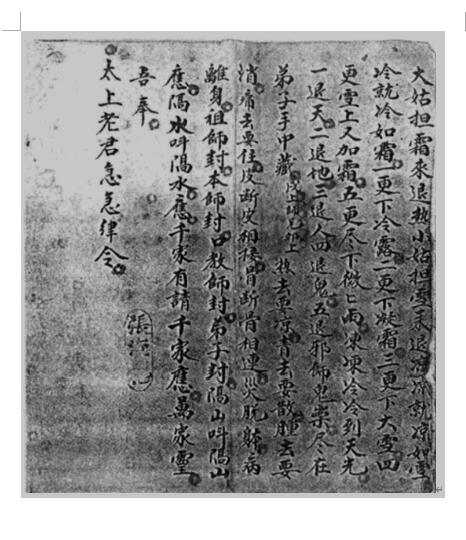 大姑担霜來退热小姑担雪來退凉凉就凉如雪
冷就冷如霜一更下冷露二更下凝霜三更下大雪四
更雪上又加霜五更尽下微匕雨凍凍冷冷到天光
一退天二退地三退人四退鬼五退邪師鬼祟尽在
弟子手中藏 上 去要凉 去要散腫去要
消痛去要住皮断皮相接骨断骨相連災脱病
離身祖師封本師封口教師封弟子封隔山叫隔山
應隔水叫隔水應千家有請千家應萬家靈
吾奉
太上老君急急律令